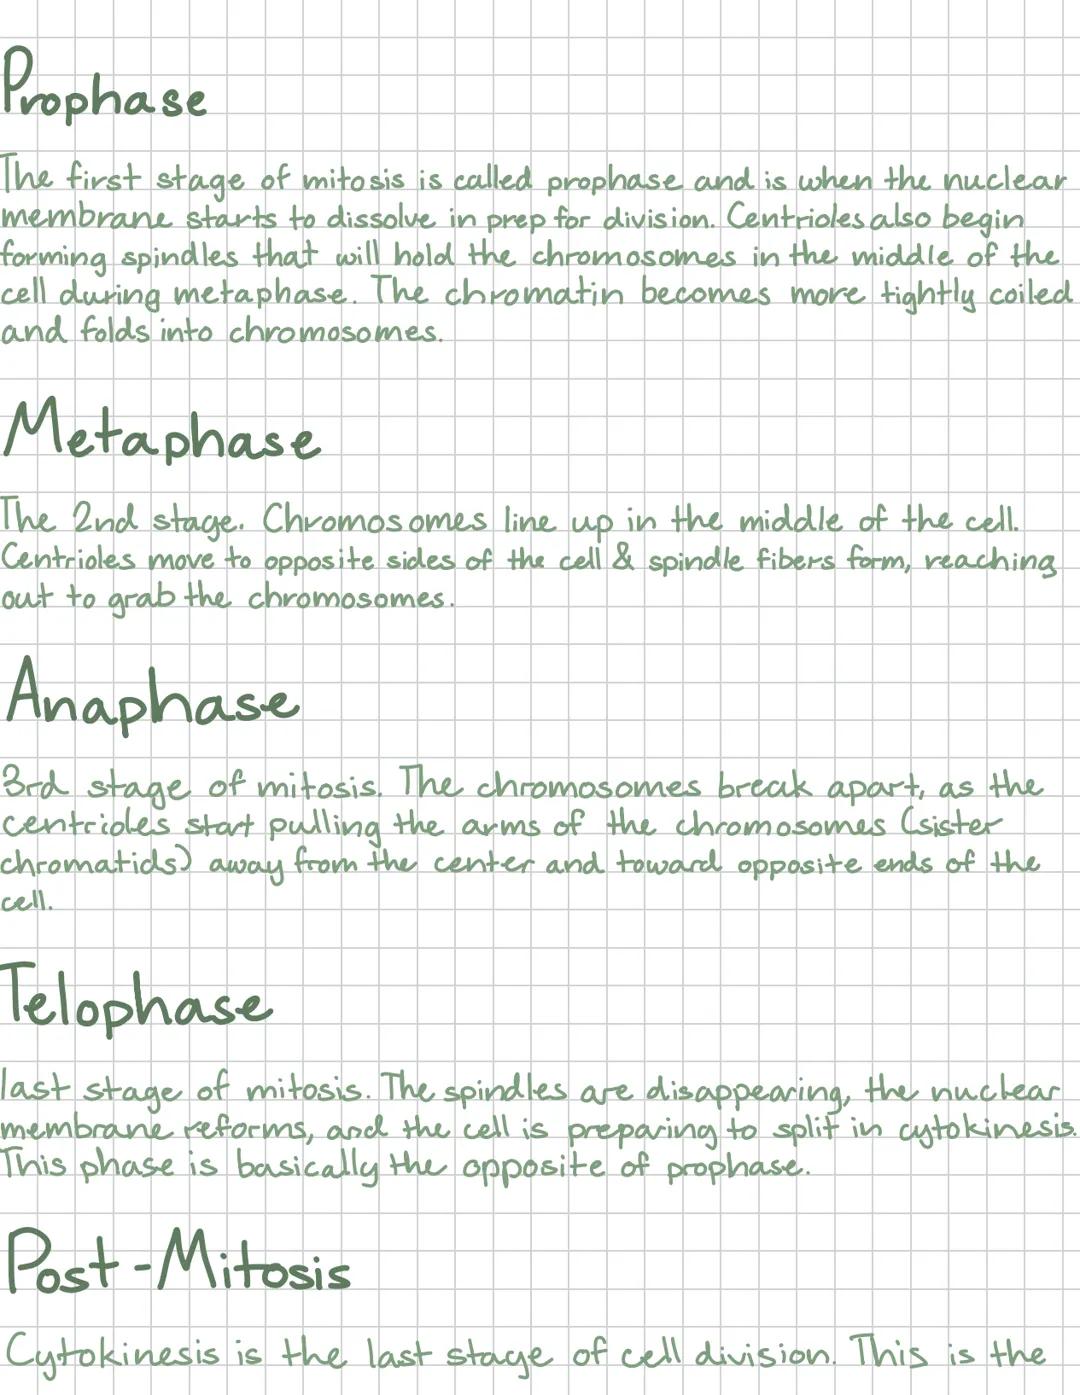 Prophase
The first stage of mitosis is called prophase and is when the nuclear
membrane starts to dissolve in prep for division. Centrioles also begin
forming spindles that will hold the chromosomes in the middle of the
cell during metaphase. The chromatin becomes more tightly coiled
and folds into chromosomes.
Metaphase
The 2nd stage. Chromosomes line up in the middle of the cell.
Centrioles move to opposite sides of the cell & spindle fibers form, reaching
out to grab the chromosomes.
Anaphase
3rd stage of mitosis. The chromosomes break apart, as the
centrioles start pulling the arms of the chromosomes (sister
chromatids) away from the center and toward opposite ends of the
cell.
Telophase
last stage of mitosis. The spindles are disappearing, the nuclear
membrane reforms, and the cell is preparing to split in cytokinesis.
This phase is basically the opposite of prophase.
Post-Mitosis
Cytokinesis is the last stage of cell division. This is the